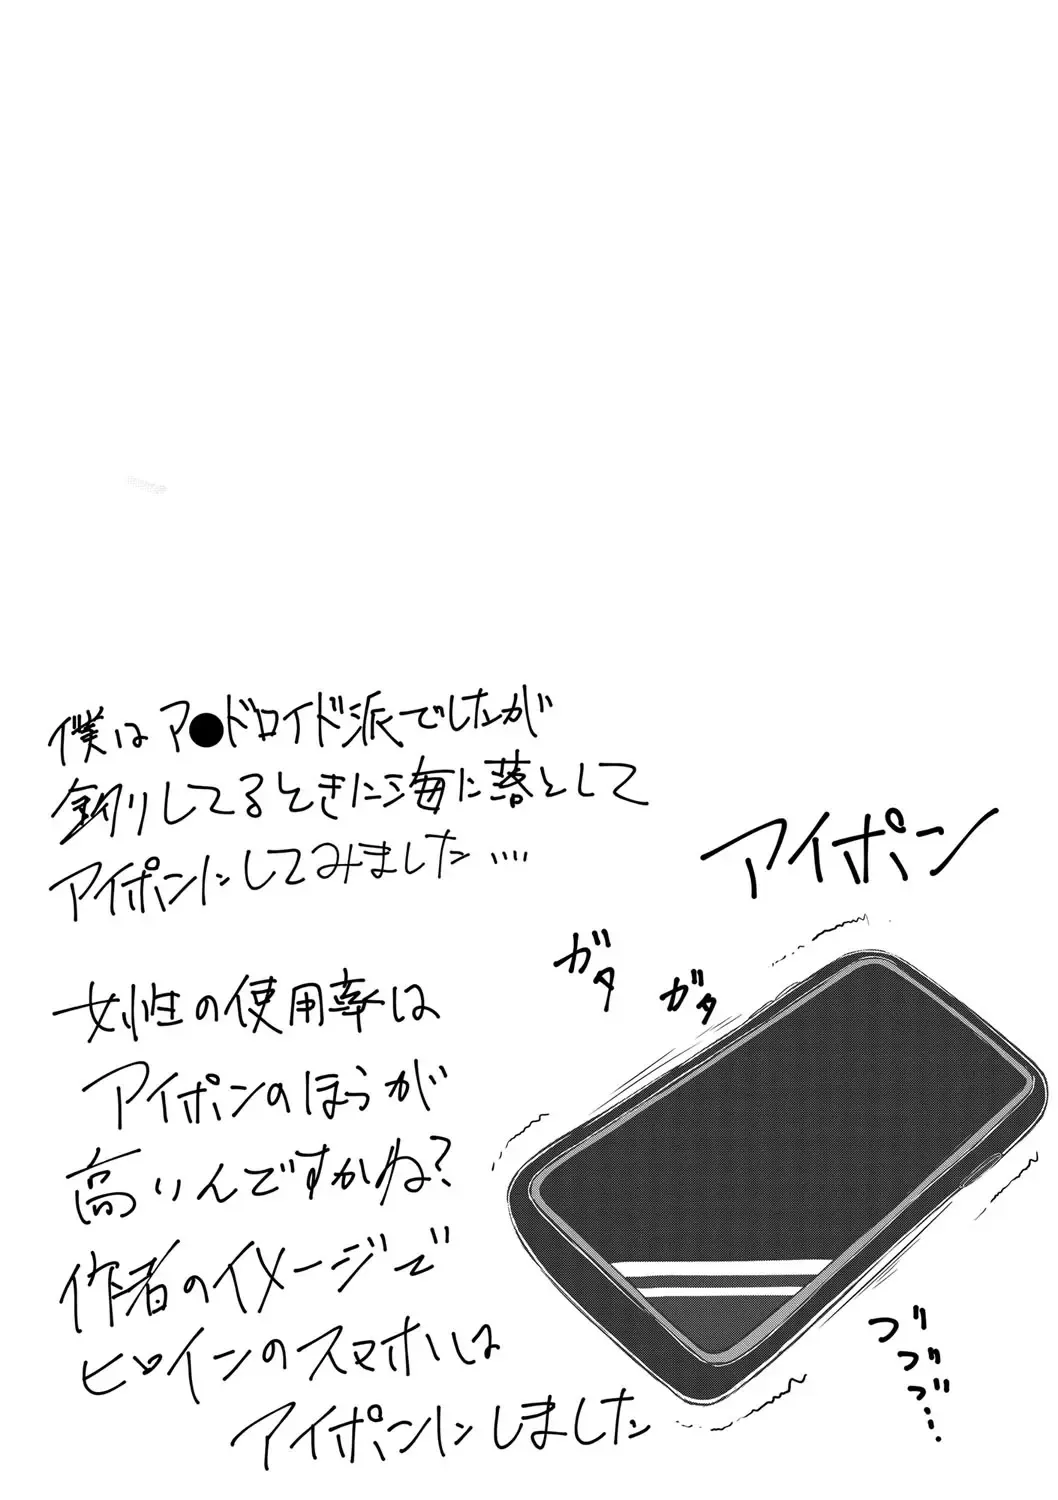 僕はア●ドロイド派でしたが
釣りしてるときに海に落として
アイポンにしてみました….
アイポン
ガタ
ガタ
女性の使用率は
アイポンのほうが
高いんですかね?
作者のイメージで
ヒロインのスマホは
アイポンにしました
ブブブブ…